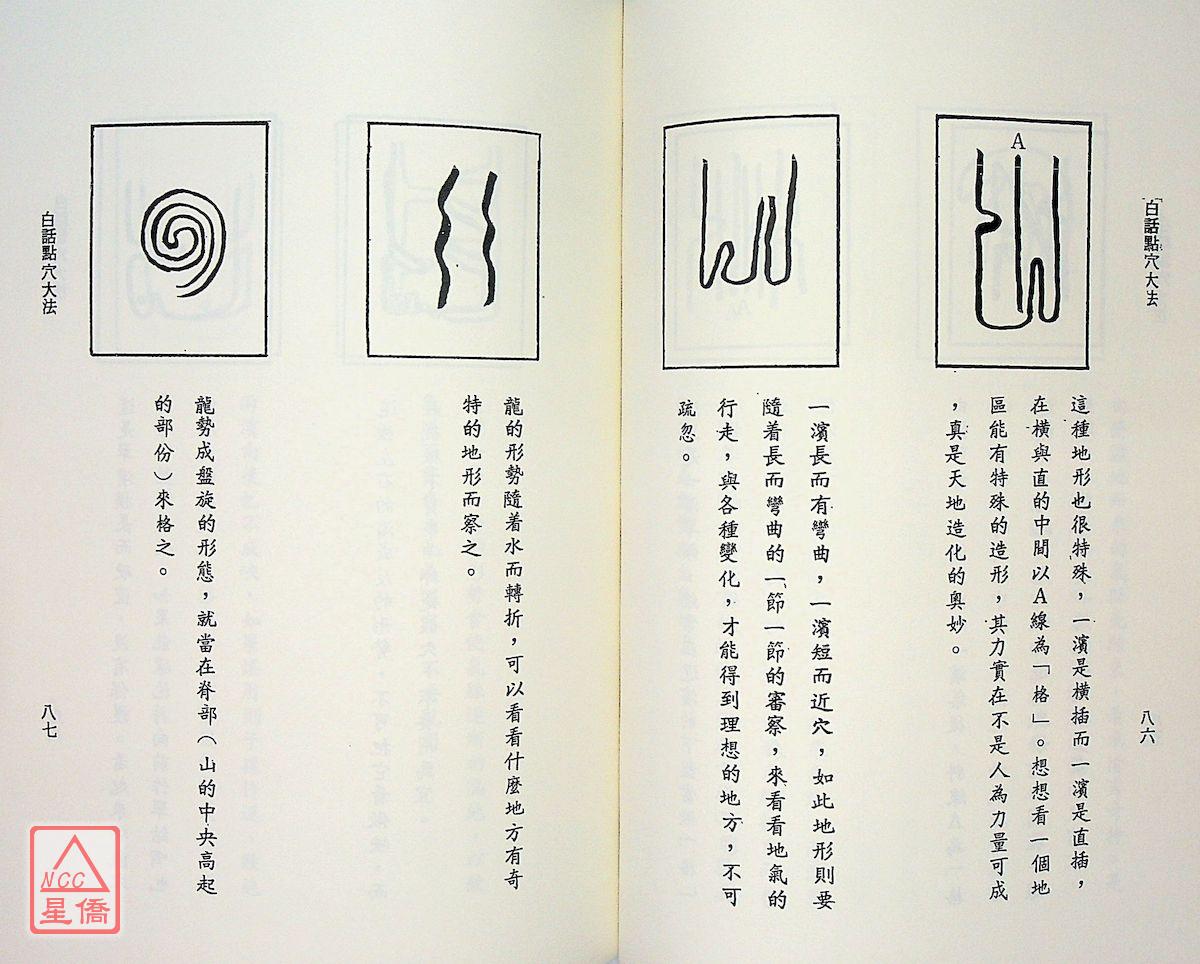 白話點穴大法
A
這種地形也很特殊，一濱是橫插而一濱是直插，
在橫與直的中間以A線為「格」。想想看一個地
區能有特殊的造形，其力實在不是人為力量可成
，真是天地造化的奧妙。
一濱長而有彎曲，一濱短而近穴，如此地形則要
隨着長而彎曲的一節一節的審察，來看看地氣的
行走，與各種變化，才能得到理想的地方，不可
疏忽。
八六
龍的形勢隨着水而轉折，可以看看什麼地方有奇
特的地形而察之。
龍勢成盤旋的形態，就當在脊部（山的中央高起
的部份）來格之。
白話點穴大法
八七
NCC
星僑